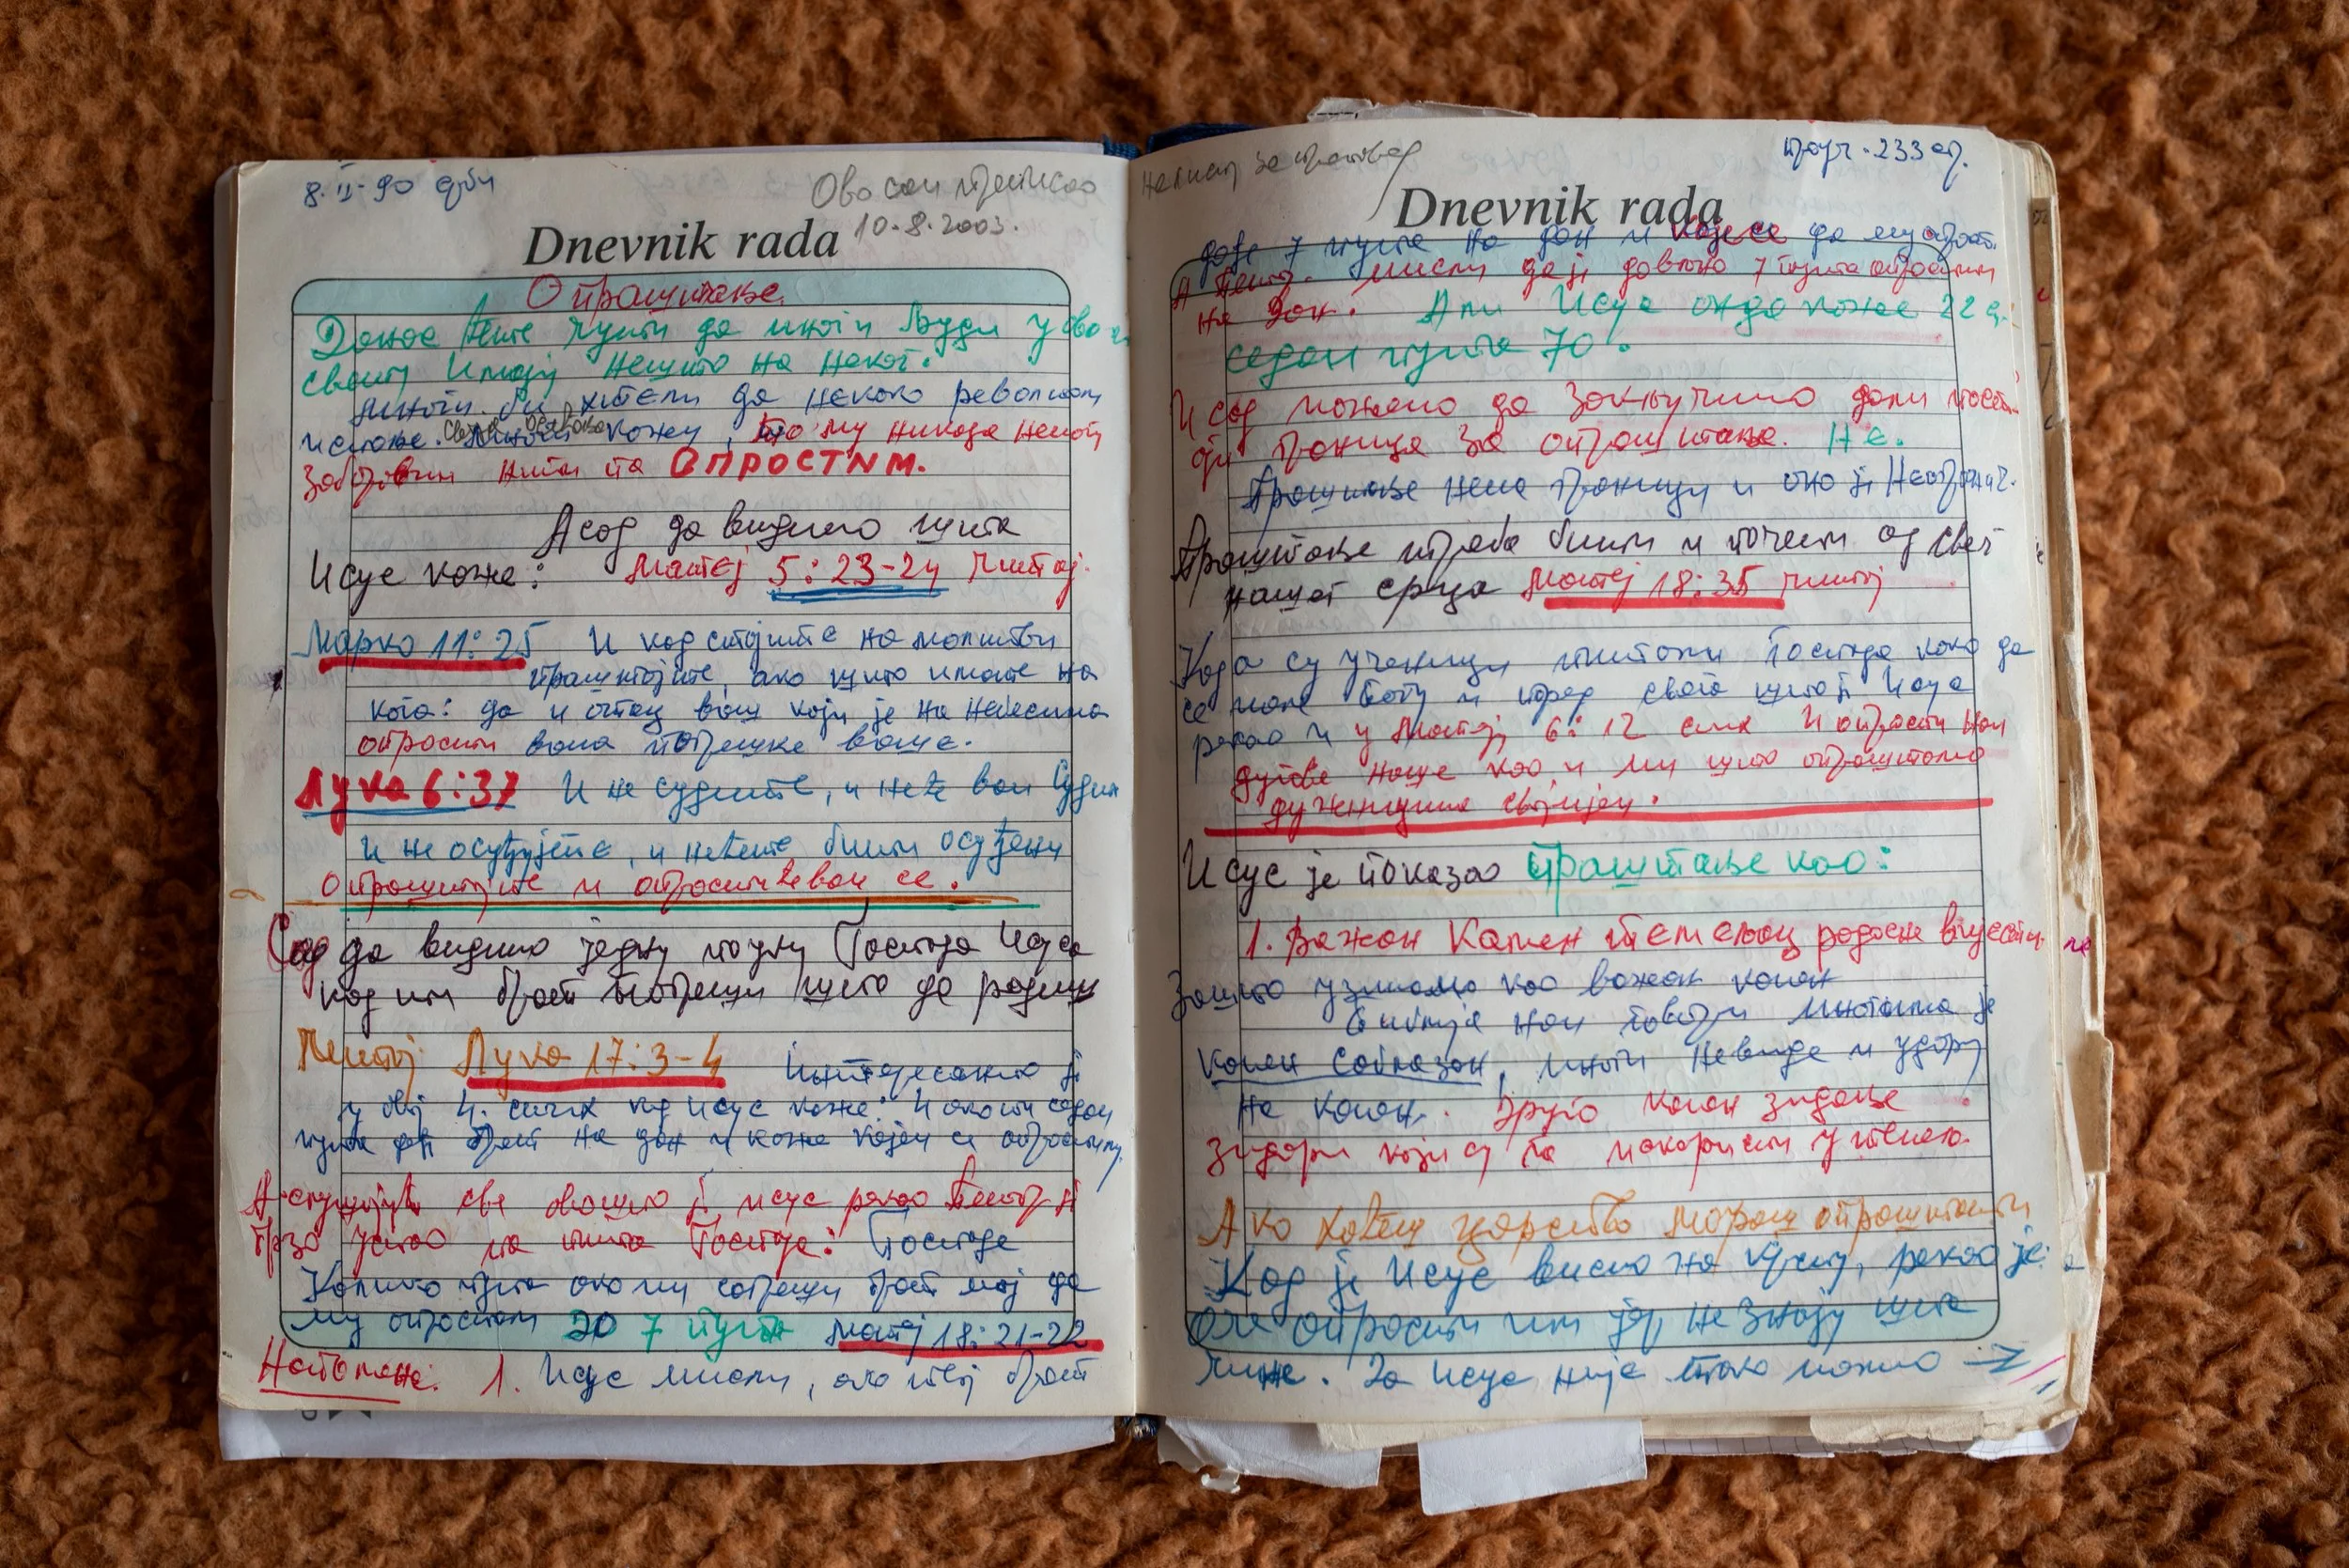 8. II - 90
Ово сам преписао
10.8.2003.
Dnevnik rada
Опраштање.
Данас ћете чути да многи људи у
имају нешто на неког.
Многи би хтели да некоко револтом
кажу, то му никада немогу
заборавити нити га ОПРОСТИМ.
А сад да видимо шта
Исус каже: Матеј 5:23-24 Читај.
Марко 11:25 И кад стојите на молитви
праштајте, ако што имате на
кога: да и отац ваш који је на небесима
опрости вама погрешке ваше.
Лука 6:37 И не судите, и неће вам судити
и не осуђујте, и нећете бити осуђени
Опраштајте и опростиће вам се.
Сад да видимо једну поуку Господа Исуса
кад им брат погреши шта да радимо
Лука 17:3-4 Интересантно је
у овој 4. стих кад Исус каже: И ако ти седам
пута брат на дан и каже кајем се опрости му.
А слушајући све ово што је Исус рекао Петар је
брзо устао па пита Господа: Господе
Колико пута ако ми сагреши брат мој да
му опростим до 7 пута Матеј 18:21-22
Напомена: 1. Исус мисли, ако твој брат
233
Dnevnik rada
дође 7 пута на дан и каје се да му опрост.
А Петар мисли да је довољно 7 пута опростити
на дан. Али Исус онда каже 22
седам пута 70.
И сад можемо да закључимо дали постоји
граница за опраштање. Не.
Праштање нема границу и оно је неогранич.
Праштање треба бити и почети од свег
нашег срца Матеј 18:35 читај
Када су ученици питали Господа како да
се моле Богу и поред свега што је Исус
рекао и у Матеј 6:12 стих И опрости нам
дугове наше као и ми што опраштамо
дужницима својијем.
Исус је показао праштање као:
1. Важан Камен темељац радосне вијести.
Зашто узимамо као важан камен
Библија нам говори многима је
камен саблазан, многи невиде и ударају
на камен. Друго камен зидање
зидари који су га
Ако хоћеш царство мораш опраштати
Кад је Исус висио на крсту, рекао је:
Оче опрости им јер не знају шта
чине. За Исуса није тако